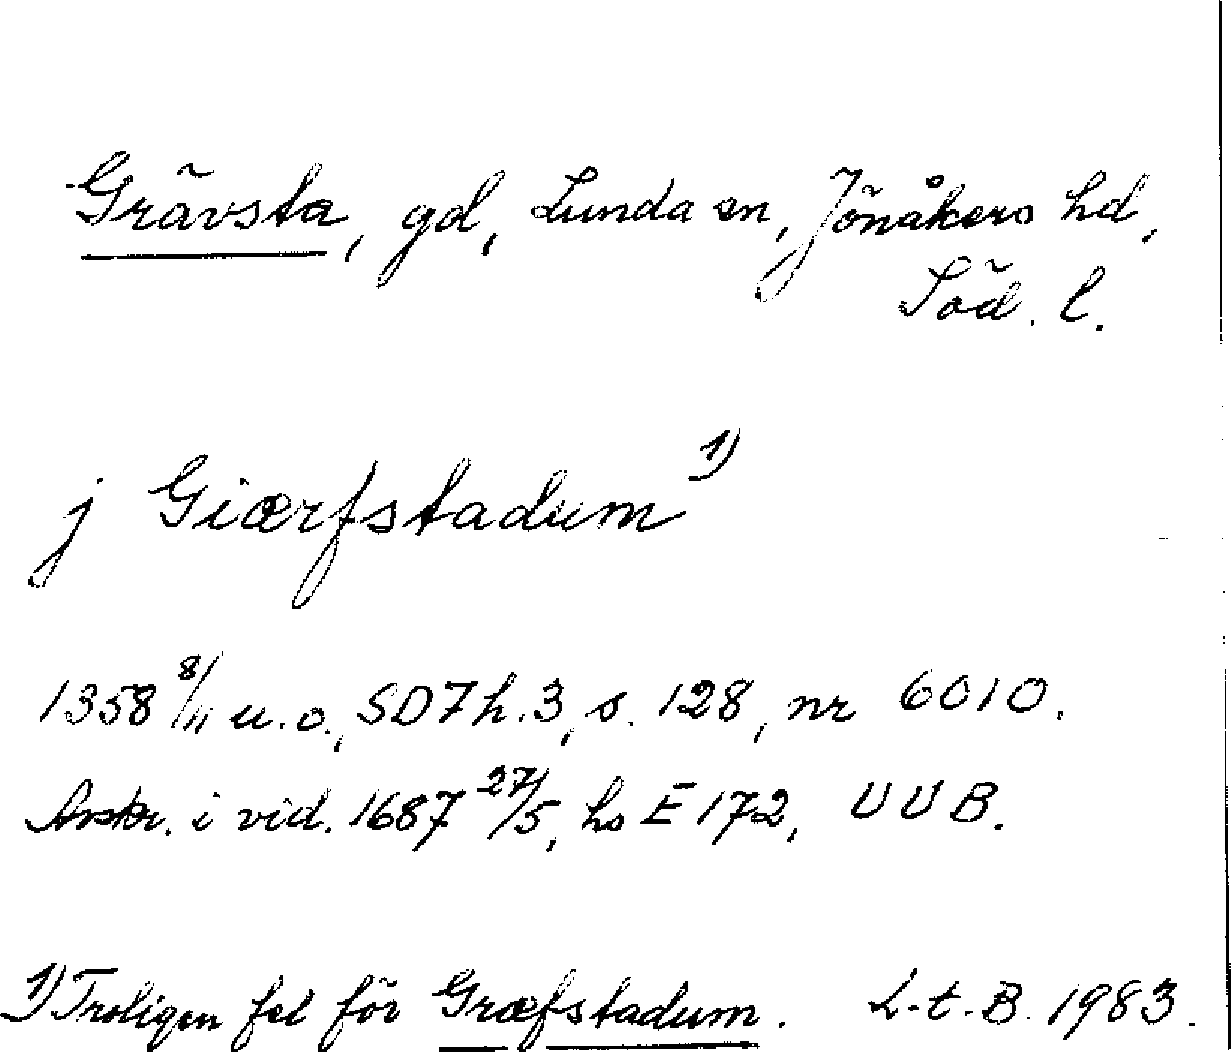 Grävsta, gd, Lunda sn, Jönåkers hd,
Söd. l.
j Giærfstadum 1)
1358 8/11 u.o., SD7 h.3, s. 128, nr 6010.
Avskr. i vid. 1687 27/5, hs E 172, UUB.
1) Troligen fel för Græfstadum. L-t.B. 1983.